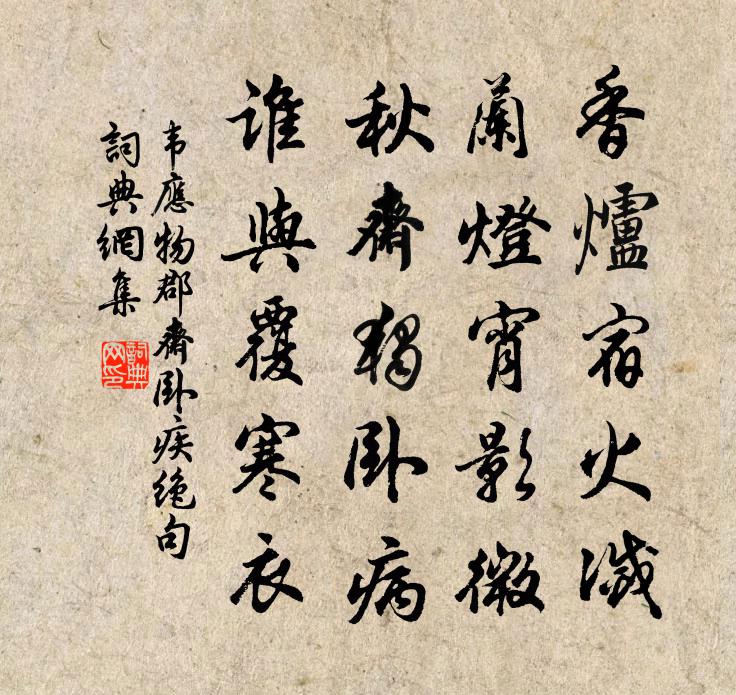 香爐宿火滅
蘭燈宵影微
秋齋獨卧病
誰與覆寒衣
韦應物郡齋卧疾絶句
詞典網集
詞典网印